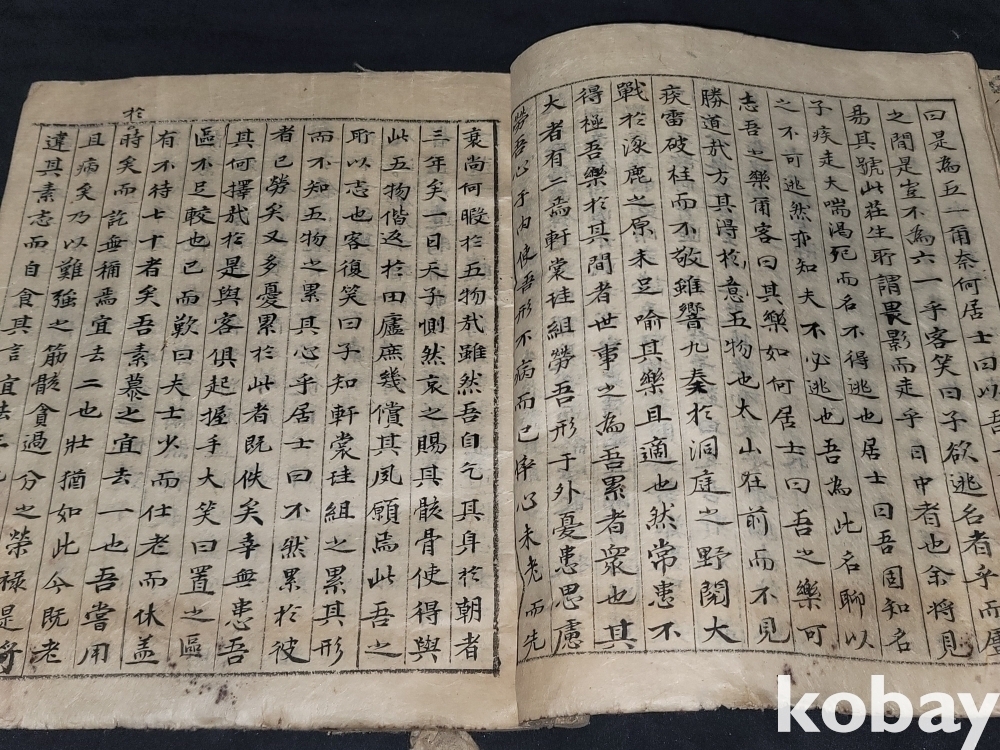 曰是為五一爾奈何居士曰以吾一
之間是豈不為六一乎客笑曰子欲逃名者乎而屢
易其號此莊生所謂畏影而走乎日中者也余將見
子疾走大喘渴死而名不得逃也居士曰吾固知名
之不可逃然亦知夫不必逃也吾為此名聊以
志吾之樂爾客曰其樂如何居士曰吾之樂可
勝道哉方其得於意五物也太山在前而不見
疾雷破柱而不敬雖響九秦於洞庭之野閱大
戰於涿鹿之原未足喻其樂且適也然常患不
得極吾樂於其間者世事之為吾累者衆也其
大者有二焉軒裳珪組勞吾形于外憂患思慮
勞吾心于內使吾形不病而已悴心未老而先
衰尚何暇於五物哉雖然吾自乞其身於朝者
三年矣一日天子惻然哀之賜其骸骨使得與
此五物偕返於田廬庶幾償其夙願焉此吾之
所以志也客復笑曰子知軒裳珪組之累其形
而不知五物之累其心乎居士曰不然累於彼
者已勞矣又多憂累於此者既佚矣幸無患吾
其何擇哉於是與客俱起握手大笑曰置之區
區不足較也已而歎曰夫士少而仕老而休蓋
有不待七十者矣吾素慕之宜去一也吾嘗用
於時矣而訖無稱焉宜去二也壯猶如此今既老
且病矣乃以難強之筋骸貪過分之榮祿是將
違其素志而自食其言宜去三
kobay